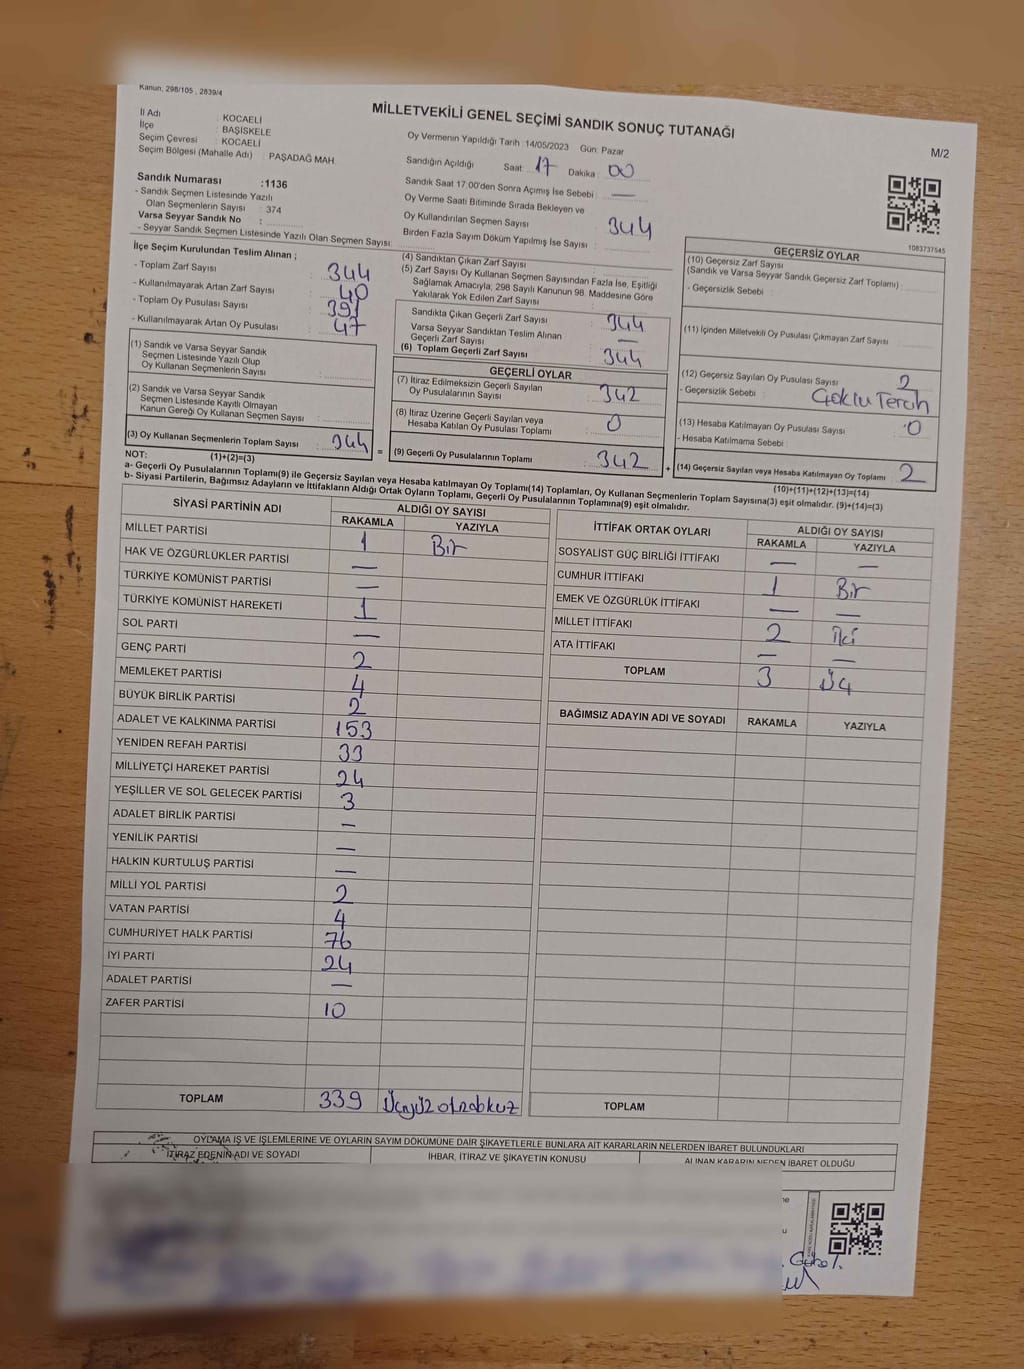 Kanun, 298/105 , 2839/4
MİLLETVEKİLİ GENEL SEÇİMİ SANDIK SONUÇ TUTANAĞI
M/2
İl Adı : KOCAELİ
İlçe : BAŞİSKELE
Seçim Çevresi : KOCAELİ
Seçim Bölgesi (Mahalle Adı) : PAŞADAĞ MAH.
Sandık Numarası :1136
- Sandık Seçmen Listesinde Yazılı
Olan Seçmenlerin Sayısı : 374
Varsa Seyyar Sandık No :
- Seyyar Sandık Seçmen Listesinde Yazılı Olan Seçmen Sayısı:
Oy Vermenin Yapıldığı Tarih :14/05/2023 Gün: Pazar
Sandığın Açıldığı Saat: 17 Dakika: 00
Sandık Saat 17:00'den Sonra Açımış İse Sebebi : —
Oy Verme Saati Bitiminde Sırada Bekleyen ve
Oy Kullandırılan Seçmen Sayısı : 344
Birden Fazla Sayım Döküm Yapılmış İse Sayısı :
1083737545
İlçe Seçim Kurulundan Teslim Alınan ;
- Toplam Zarf Sayısı : 344
- Kullanılmayarak Artan Zarf Sayısı : 40
- Toplam Oy Pusulası Sayısı : 391
- Kullanılmayarak Artan Oy Pusulası : 47
(1) Sandık ve Varsa Seyyar Sandık
Seçmen Listesinde Yazılı Olup
Oy Kullanan Seçmenlerin Sayısı :
(2) Sandık ve Varsa Seyyar Sandık
Seçmen Listesinde Kayıtlı Olmayan
Kanun Gereği Oy Kullanan Seçmen Sayısı :
(3) Oy Kullanan Seçmenlerin Toplam Sayısı : 344
(1)+(2)=(3)
(4) Sandıktan Çıkan Zarf Sayısı :
(5) Zarf Sayısı Oy Kullanan Seçmen Sayısından Fazla İse, Eşitliği
Sağlamak Amacıyla, 298 Sayılı Kanunun 98. Maddesine Göre
Yakılarak Yok Edilen Zarf Sayısı :
Sandıkta Çıkan Geçerli Zarf Sayısı : 344
Varsa Seyyar Sandıktan Teslim Alınan
Geçerli Zarf Sayısı : —
(6) Toplam Geçerli Zarf Sayısı : 344
GEÇERLİ OYLAR
(7) İtiraz Edilmeksizin Geçerli Sayılan
Oy Pusulalarının Sayısı : 342
(8) İtiraz Üzerine Geçerli Sayılan veya
Hesaba Katılan Oy Pusulası Toplamı : 0
= (9) Geçerli Oy Pusulalarının Toplamı : 342
GEÇERSİZ OYLAR
(10) Geçersiz Zarf Sayısı
(Sandık ve Varsa Seyyar Sandık Geçersiz Zarf Toplamı) :
- Geçersizlik Sebebi :
(11) İçinden Milletvekili Oy Pusulası Çıkmayan Zarf Sayısı :
(12) Geçersiz Sayılan Oy Pusulası Sayısı : 2
- Geçersizlik Sebebi : Çoklu Tercih
(13) Hesaba Katılmayan Oy Pusulası Sayısı : 0
- Hesaba Katılmama Sebebi :
+ (14) Geçersiz Sayılan veya Hesaba Katılmayan Oy Toplamı : 2
(10)+(11)+(12)+(13)=(14)
NOT:
a- Geçerli Oy Pusulalarının Toplamı(9) ile Geçersiz Sayılan veya Hesaba katılmayan Oy Toplamı(14) Toplamları, Oy Kullanan Seçmenlerin Toplam Sayısına(3) eşit olmalıdır. (9)+(14)=(3)
b- Siyasi Partilerin, Bağımsız Adayların ve İttifakların Aldığı Ortak Oyların Toplamı, Geçerli Oy Pusulalarının Toplamına(9) eşit olmalıdır.
SİYASİ PARTİNİN ADI ALDIĞI OY SAYISI
RAKAMLA YAZIYLA
MİLLET PARTİSİ 1 Bir
HAK VE ÖZGÜRLÜKLER PARTİSİ —
TÜRKİYE KOMÜNİST PARTİSİ —
TÜRKİYE KOMÜNİST HAREKETİ 1
SOL PARTİ —
GENÇ PARTİ 2
MEMLEKET PARTİSİ 4
BÜYÜK BİRLİK PARTİSİ 2
ADALET VE KALKINMA PARTİSİ 153
YENİDEN REFAH PARTİSİ 33
MİLLİYETÇİ HAREKET PARTİSİ 24
YEŞİLLER VE SOL GELECEK PARTİSİ 3
ADALET BİRLİK PARTİSİ —
YENİLİK PARTİSİ —
HALKIN KURTULUŞ PARTİSİ —
MİLLİ YOL PARTİSİ 2
VATAN PARTİSİ 4
CUMHURİYET HALK PARTİSİ 76
İYİ PARTİ 24
ADALET PARTİSİ —
ZAFER PARTİSİ 10
TOPLAM 339 Üçyüz otuzdokuz
İTTİFAK ORTAK OYLARI ALDIĞI OY SAYISI
RAKAMLA YAZIYLA
SOSYALİST GÜÇ BİRLİĞİ İTTİFAKI — —
CUMHUR İTTİFAKI 1 Bir
EMEK VE ÖZGÜRLÜK İTTİFAKI — —
MİLLET İTTİFAKI 2 İki
ATA İTTİFAKI — —
TOPLAM 3 Üç
BAĞIMSIZ ADAYIN ADI VE SOYADI RAKAMLA YAZIYLA
TOPLAM
OYLAMA İŞ VE İŞLEMLERİNE VE OYLARIN SAYIM DÖKÜMÜNE DAİR ŞİKAYETLERLE BUNLARA AİT KARARLARIN NELERDEN İBARET BULUNDUKLARI
İTİRAZ EDENİN ADI VE SOYADI İHBAR, İTİRAZ VE ŞİKAYETİN KONUSU ALINAN KARARIN NEDEN İBARET OLDUĞU